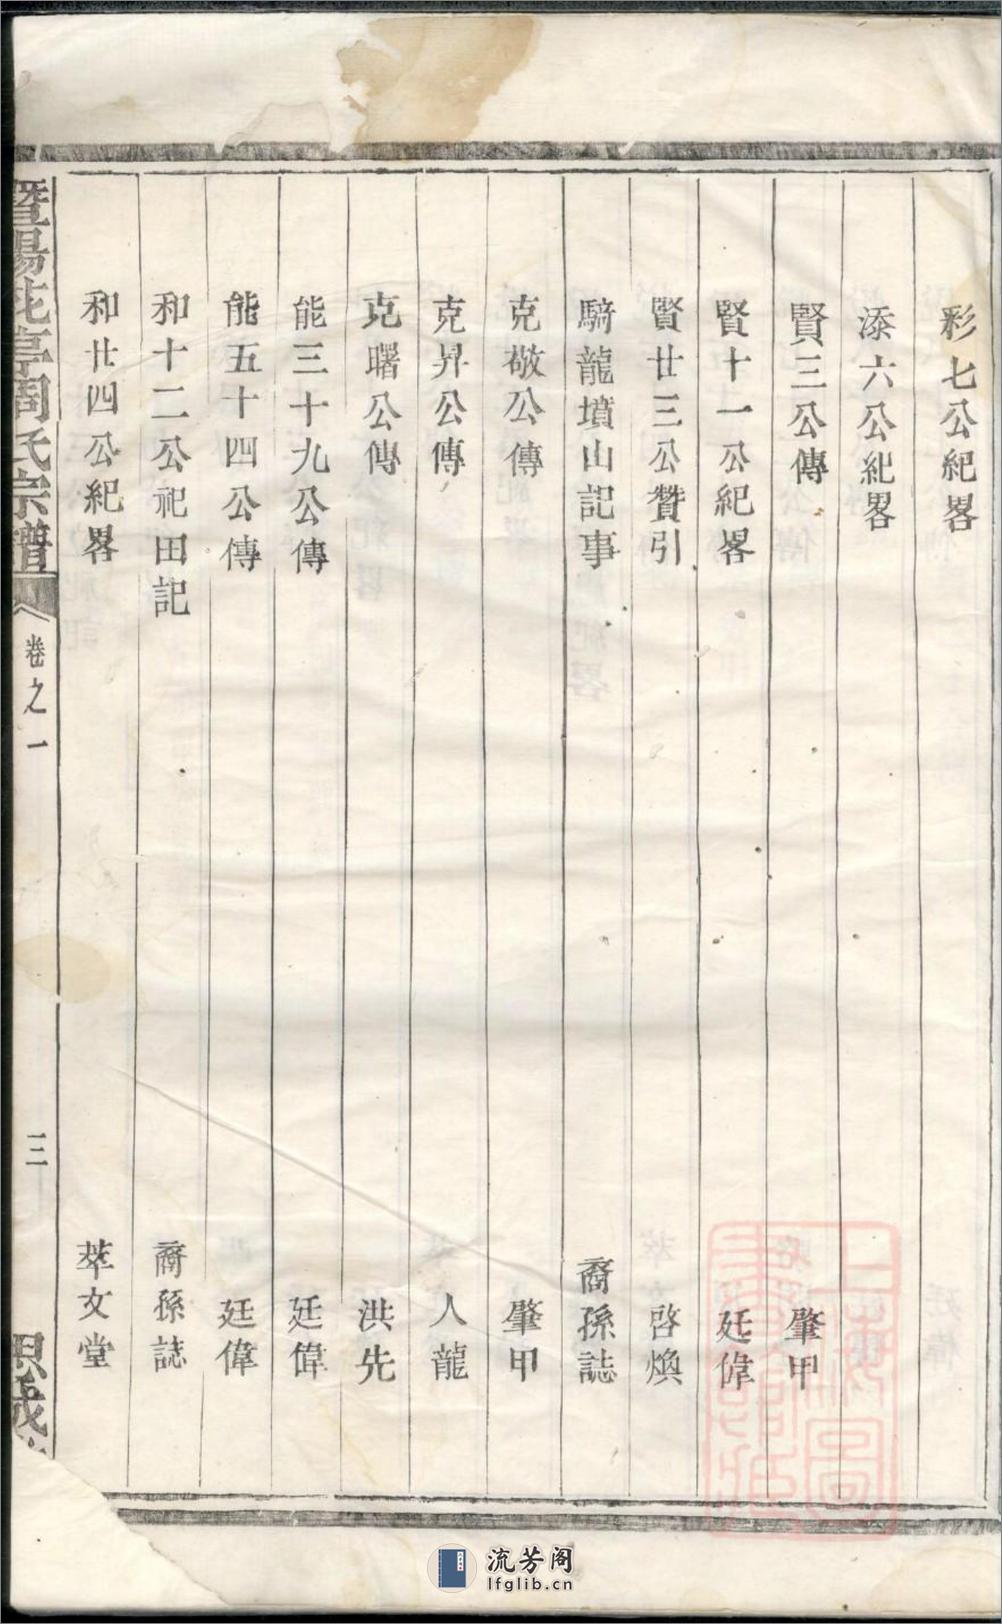 彩七公紀畧
添六公紀畧
賢三公傳 肇甲
賢十一公紀畧 廷偉
賢廿三公贊引 啓煥
騎龍墳山記事 裔孫誌
克敬公傳 肇甲
克昇公傳 人龍
克曙公傳 洪先
能三十九公傳 廷偉
能五十四公傳 廷偉
和十二公祀田記 裔孫誌
和廿四公紀畧 萃文堂
暨陽花亭周氏宗譜 卷之一 三
上海圖書館藏
流芳阁
lfglib.cn